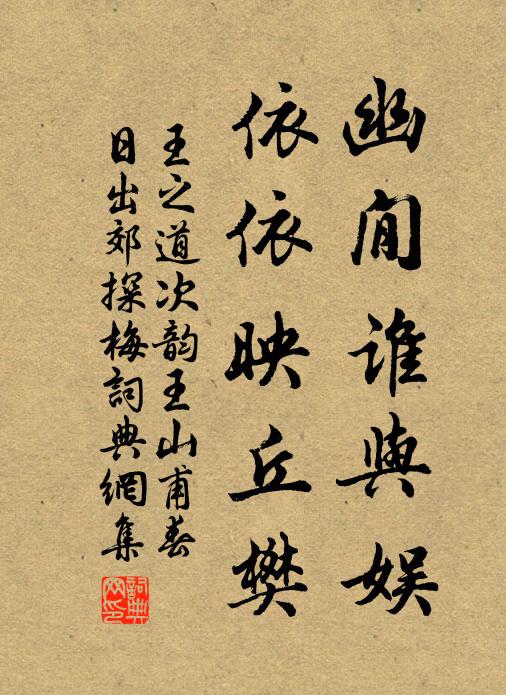 幽閒誰與娛
依依映丘樊
王之道次韵王山甫春
日出郊探梅詞典網集
詞典网印